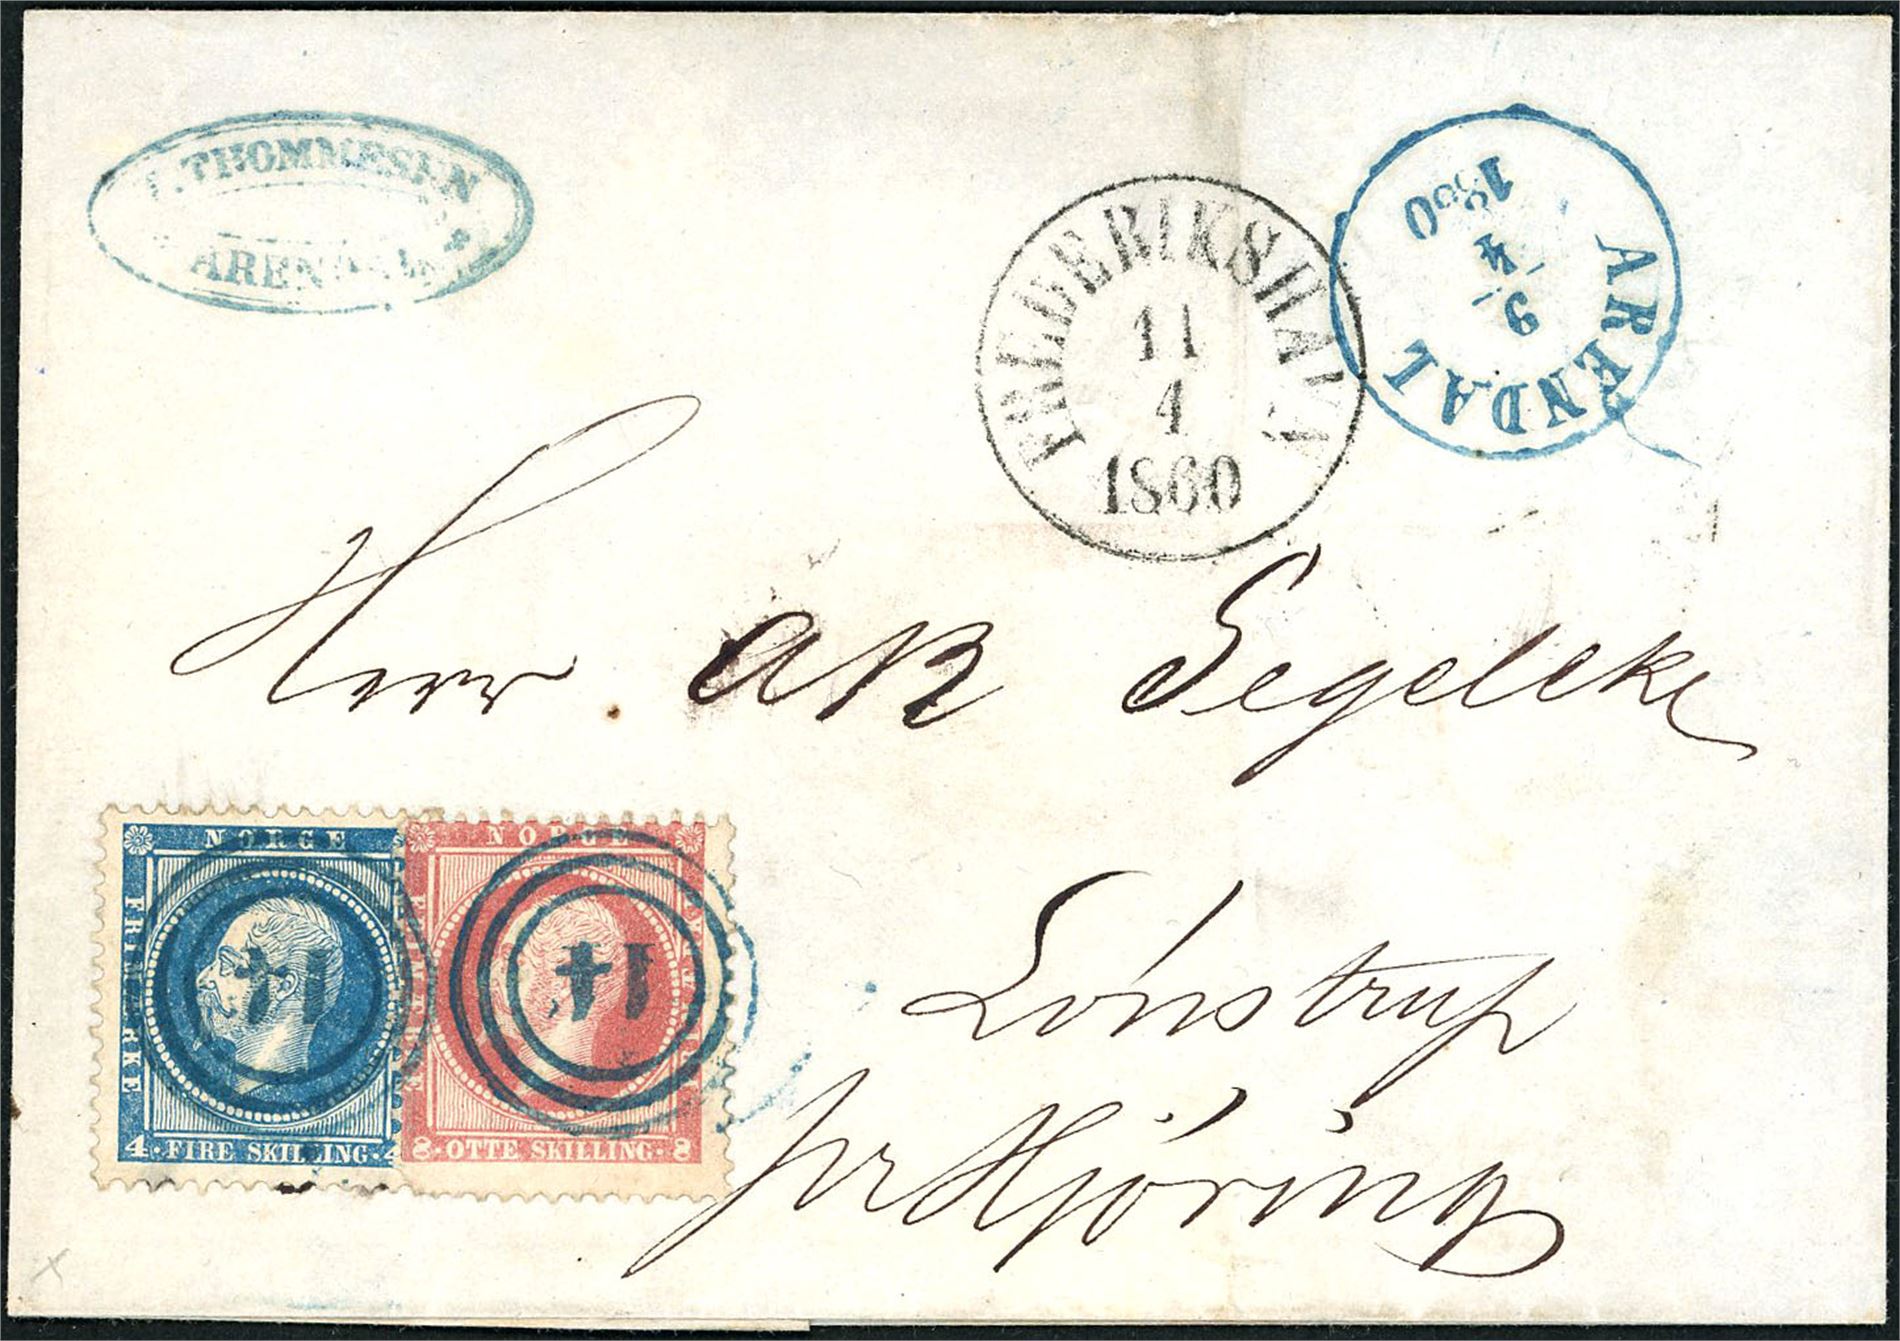 THOMMESEN
ARENDAL
FREDERIKSHAVN
11
4
1860
ARENDAL
9
4
1860
Herr AB Segelcke
Lönstrup
pr Hjöring
NORGE
FRIMÆRKE
4 · FIRE SKILLING · 4
NORGE
FRIMÆRKE
8 · OTTE SKILLING · 8
14
14